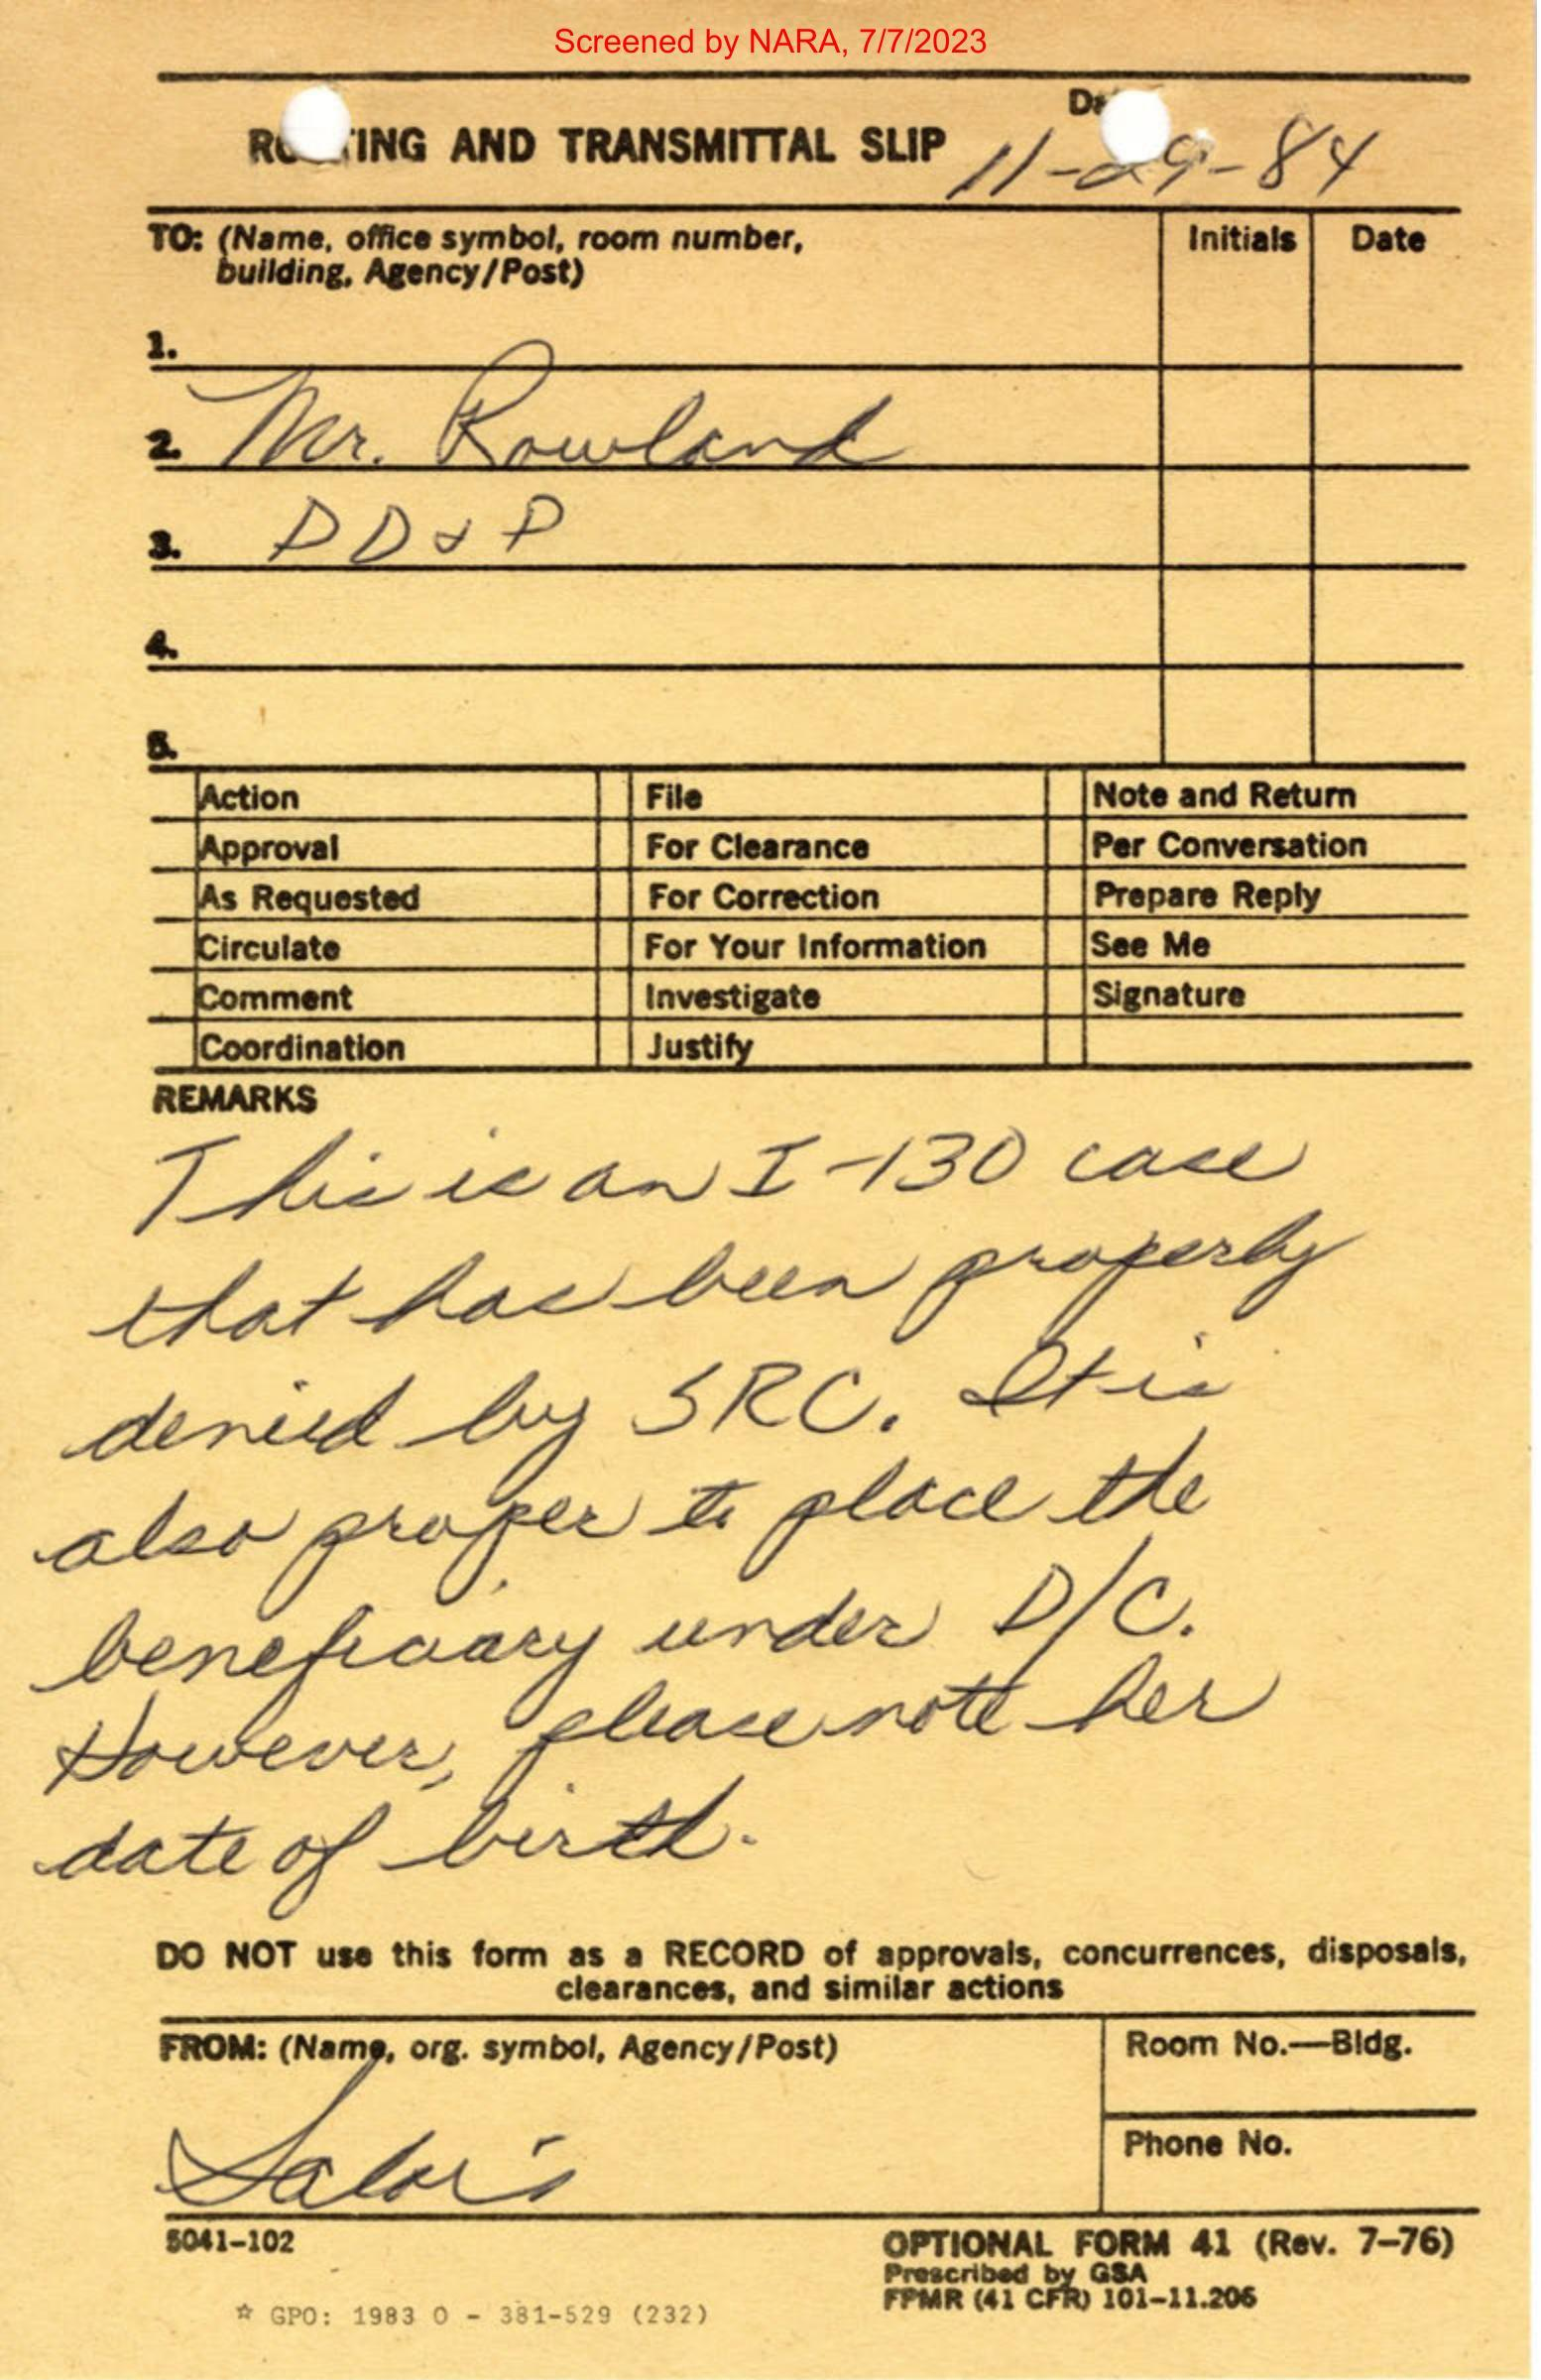 Screened by NARA, 7/7/2023
Da
RO TING AND TRANSMITTAL SLIP 11-29-84
TO: (Name, office symbol, room number, Initials Date
building, Agency/Post)
1.
2. Mr. Rowland
3. DD&P
4.
5.
Action File Note and Return
Approval For Clearance Per Conversation
As Requested For Correction Prepare Reply
Circulate For Your Information See Me
Comment Investigate Signature
Coordination Justify
REMARKS
This is an I-130 case
that has been properly
denied by SRC. It is
also proper to place the
beneficiary under D/C.
However, please note her
date of birth.
DO NOT use this form as a RECORD of approvals, concurrences, disposals,
clearances, and similar actions
FROM: (Name, org. symbol, Agency/Post) Room No.—Bldg.
Phone No.
5041-102 OPTIONAL FORM 41 (Rev. 7-76)
Prescribed by GSA
FPMR (41 CFR) 101-11.206
☆ GPO: 1983 O - 381-529 (232)